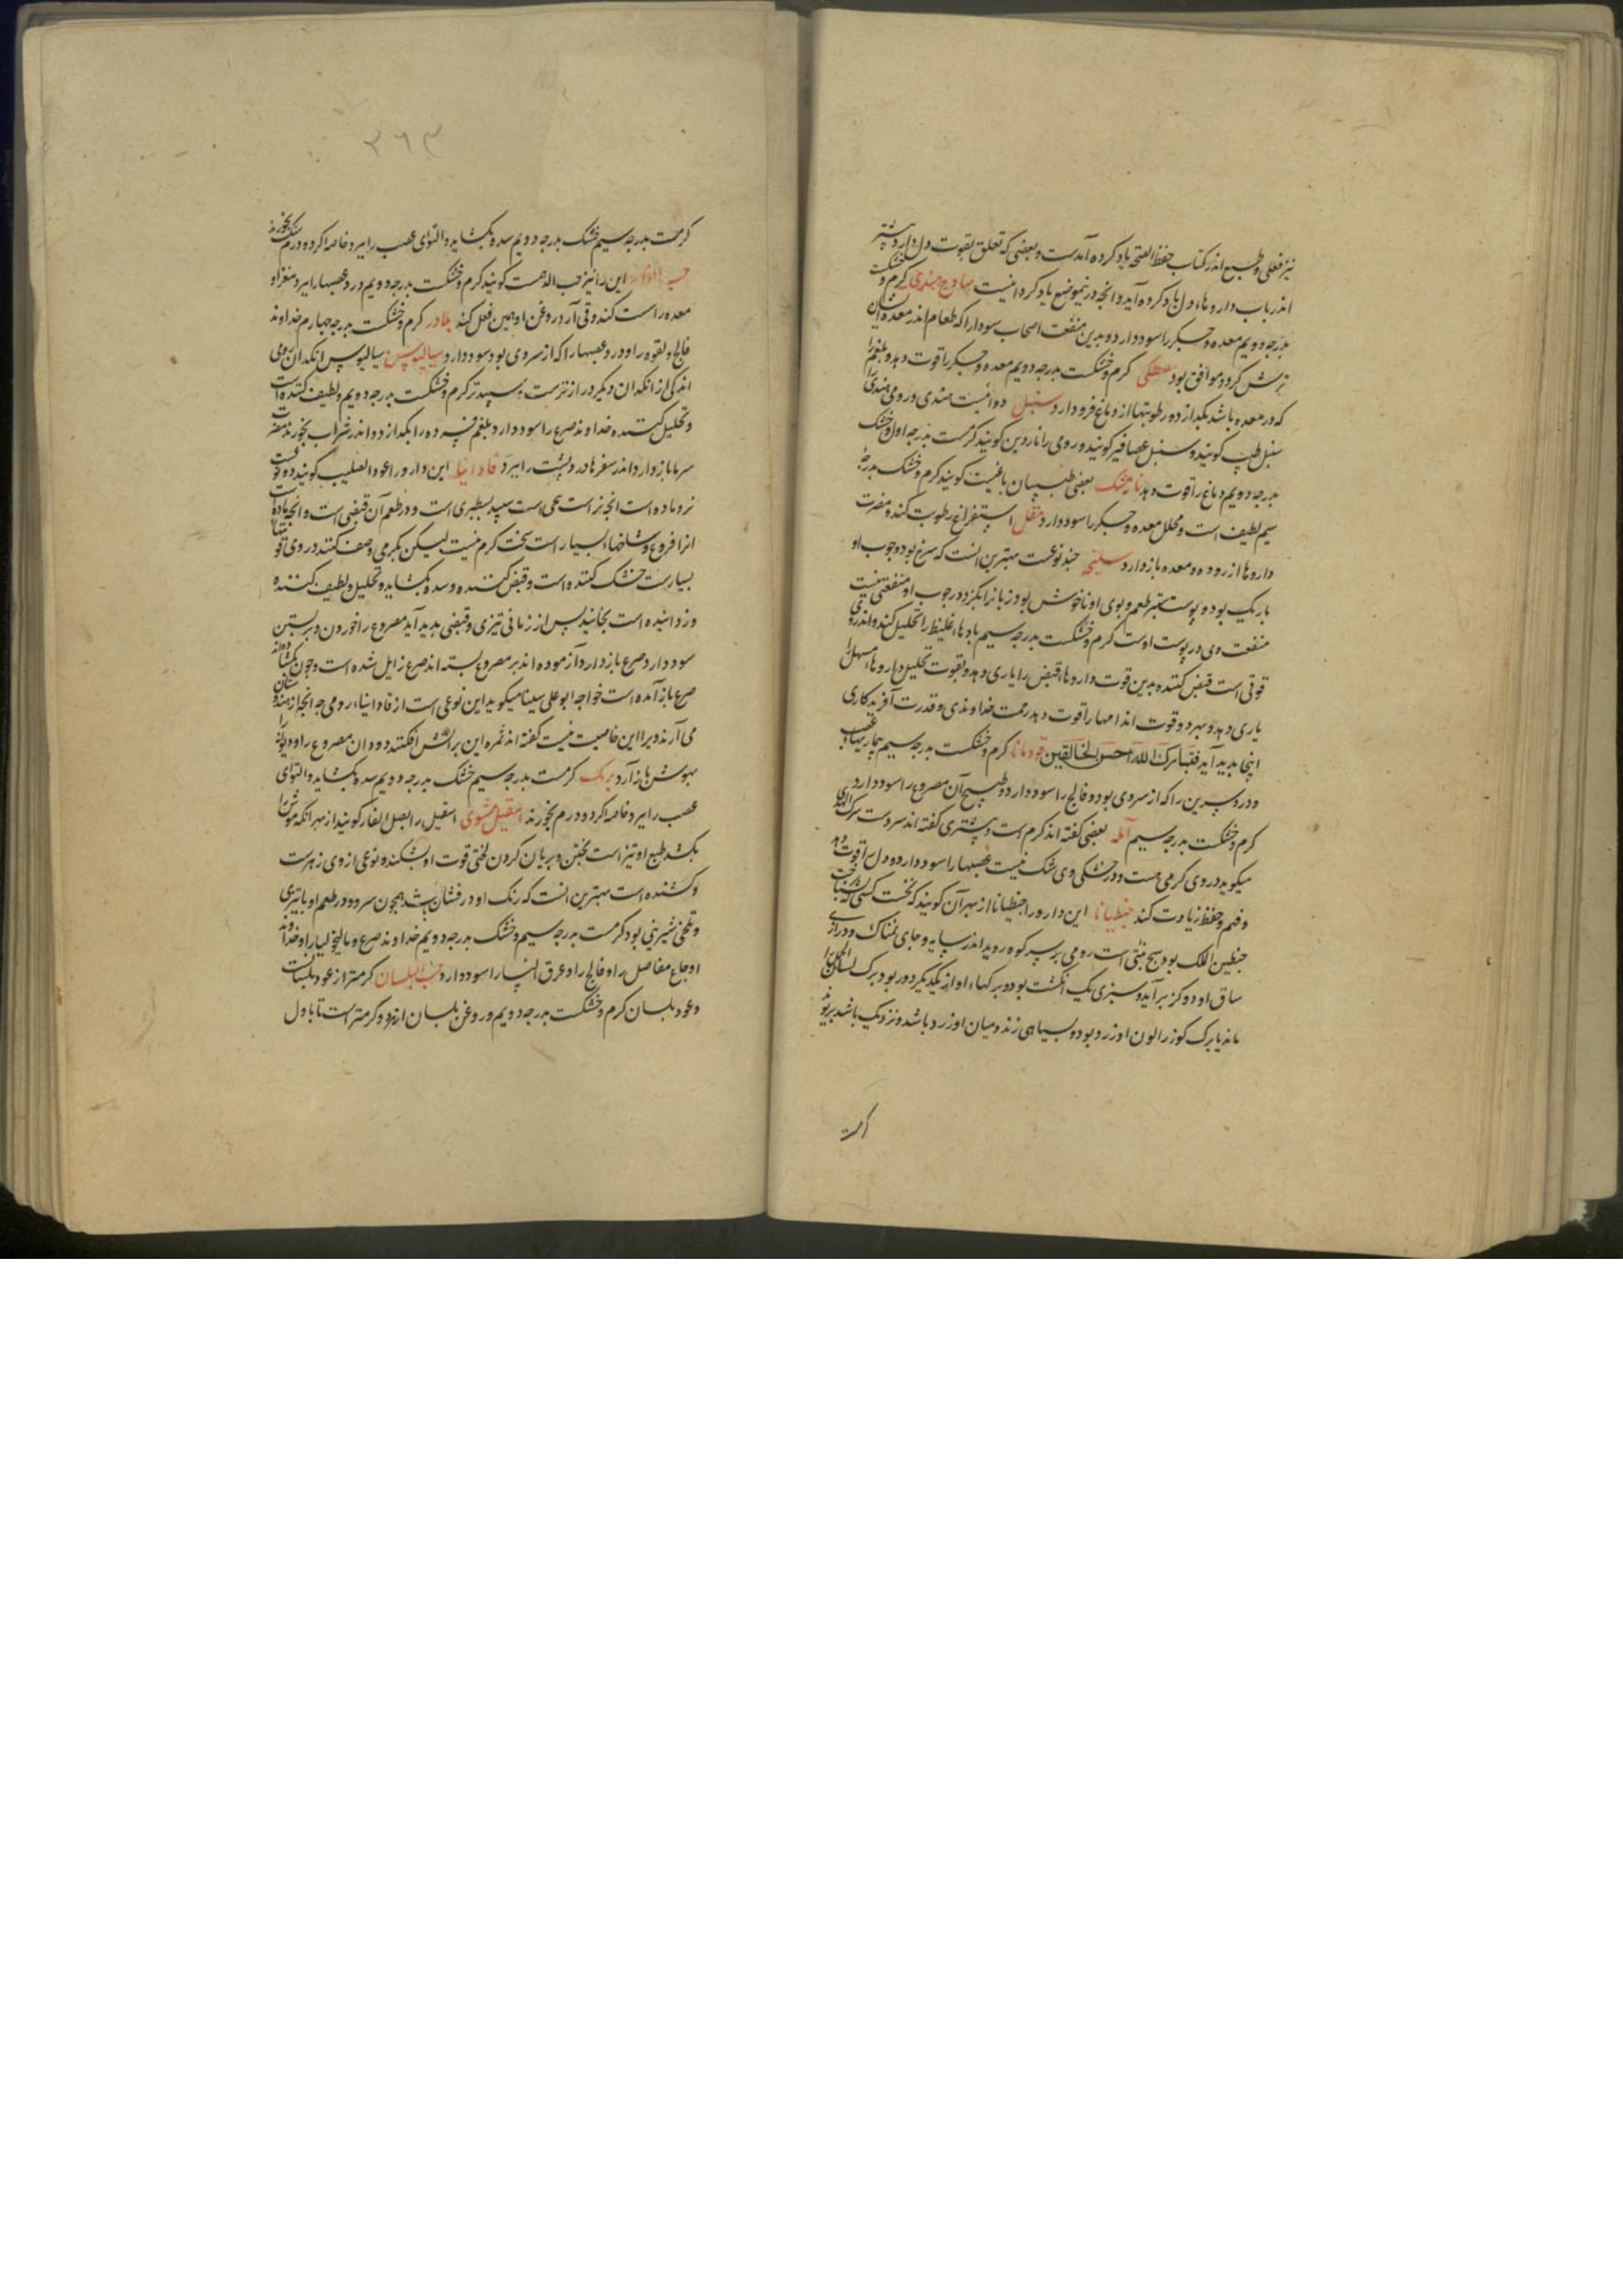 نیز فعلی و طبع اندر کتاب حفظ الصحه یاد کرده آمدست و بعضی که تعلق بقوت دل دارد
اندر باب داروهاء دل یاد کرده آید و انجه درنموضع یاد کردانیست ساذج هندی کرم و خشکست
بدرجه دویم معده و جکر را سود دارد و بدین منفعت اصحاب سودا را که طعام اندر معده ایشان
ترش کردد موافق بود مصطکی کرم و خشکست بدرجه دویم معده و جکر را قوت دهد و بلغم را
که در معده باشد بکدازد و رطوبتها از دماغ فرود ارد سنبل دو انیست هندی و رومی هندی را
سنبل طیب کویند و سنبل عصافیر کویند و رومی را ناردین کویند کرمست بدرجه اول و خشک
بدرجه دویم دماغ را قوت دهد نارمشک بعضی طبیبان باغیست کویند کرم و خشک بدرجه
سیم لطیف است و محلل معده و جکر را سود دارد مقل استفراغ رطوبت کند و مضرت
داروها از روده و معده باز دارد سلیخه جند نوعست بهترین انست که سرخ بود و جوب او
باریک بود و پوست ستبر طعم و بوی او ناخوش بود زبانرا بکزد و در جوب او منفعتی نیست
منفعت وی در پوست اوست کرم و خشکست بدرجه سیم بادهاء غلیظ را تحلیل کند و اندر وی
قوتی است قبض کننده بدین قوت داروهاء قبض را یاری دهد و بقوت تحلیل داروهاء مسهل را
یاری دهد و بهر دو قوت اندامها را قوت دهد رحمت خداوندی و قدرت آفریدکاری
اینجا بدید آید فتبارک الله احسن الخالقین قردمانا کرم و خشکست بدرجه سیم بیماریهاء عصب
و درد سرین را که از سردی بود و فالج را سود دارد و طبیخ آن مصروع را سود دارد
کرم و خشکست بدرجه سیم آمله بعضی کفته اند کرم است و بیشتری کفته اند سردست
میکوید در وی کرمی هست و در خشکی وی شک نیست عصبها را سود دارد و دل را قوت دهد
و فهم و حفظ زیادت کند جنطیانا این دارو را جنطیانا از بهر آن کویند که نخست کسی که شناخت
جنطین الملک بود و بیخ نبتی است رومی بر سر کوه روید اندر سایه و جای نمناک و درازی
ساق او دو کز برآید و سبزی یک انکشت بود و برکهاء او از یکدیکر دور بود و برک لسان الحمل را
ماند یا برک کوز را لون او زرد بود و بسیاهی زند و میان او زرد باشد و نزدیک باشد
کرمست
۳٦۳
کرمست بدرجه سیم خشک بدرجه دویم سده بکشاید و التوای عصب را ببرد خاصه اکر دو درم سنک بخورند
این را نیز حب الدهمست کویند کرم و خشکست بدرجه دویم درد عصبها را ببرد و مغز او
معده را سست کند و قی آرد روغن او همین فعل کند بلادر کرم و خشکست بدرجه جهارم خداوند
فالج و لقوه را و درد عصبها را که از سردی بود سود دارد سیالیوس سیالیوس انکدان رومی
اندکی از انکدان دیکر درازترست و سپیدتر کرم و خشکست بدرجه دویم و لطیف کننده است
و تحلیل کننده خداوند صرع را سود دارد و بلغم فسرده را بکدازد و اندر شراب بخورند مضرت
سرما باز دارد اندر سفرها درد پشت را ببرد فاوانیا این دارو را عود الصلیب کویند دو نوعست
نر و ماده است انجه نر است بیخی است سپید بسطبری است و در طعم آن قبضی است و انجه ماده است
انرا فروع و شاخهاء بسیار است سخت کرم نیست لیکن بکرمی وصف کنند در وی
بسیارست خشک کننده است و قبض کننده و سده بکشاید و تحلیل و لطیف کننده
و زداینده است بخایند پس از زمانی تیزی و قبضی بدید آید مصروع را خوردن و بر بستن
سود دارد صرع باز دارد آزموده اند بر مصروع بسته اند صرع زایل شده است و جون بکشاده اند
صرع باز آمده است خواجه ابو علی سینا میکوید این نوعی است از فاوانیاء رومی جه انجه از هندوستان
می آرند ویرا این خاصیت نیست کفته اند ثمره این بر آتش افکنند دود ان مصروع را و دیوانه را
بهوش باز آرد برنک کرمست بدرجه سیم خشک بدرجه دویم سده بکشاید و التوای
عصب را ببرد خاصه اکر دو درم بخورند اسقیل مشوی اسقیل را بصل الفار کویند از بهر انکه موش را
بکشد طبع او تیز است بختن و بریان کردن لختی قوت او بشکند و نوعی از وی زهرست
و کشنده است بهترین انست که رنک او درفشان باشد همچون سرو و در طعم او با تیزی
و تلخی شیرینی بود کرمست بدرجه سیم و خشک بدرجه دویم خداوند صرع و مالیخولیا را و خداوند
اوجاع مفاصل را و فالج را و عرق النسا را سود دارد حب البلسان کرمتر از عود بلسانست
و عود بلسان کرم و خشکست بدرجه دویم و روغن بلسان از هر دو کرمتر است تا باول